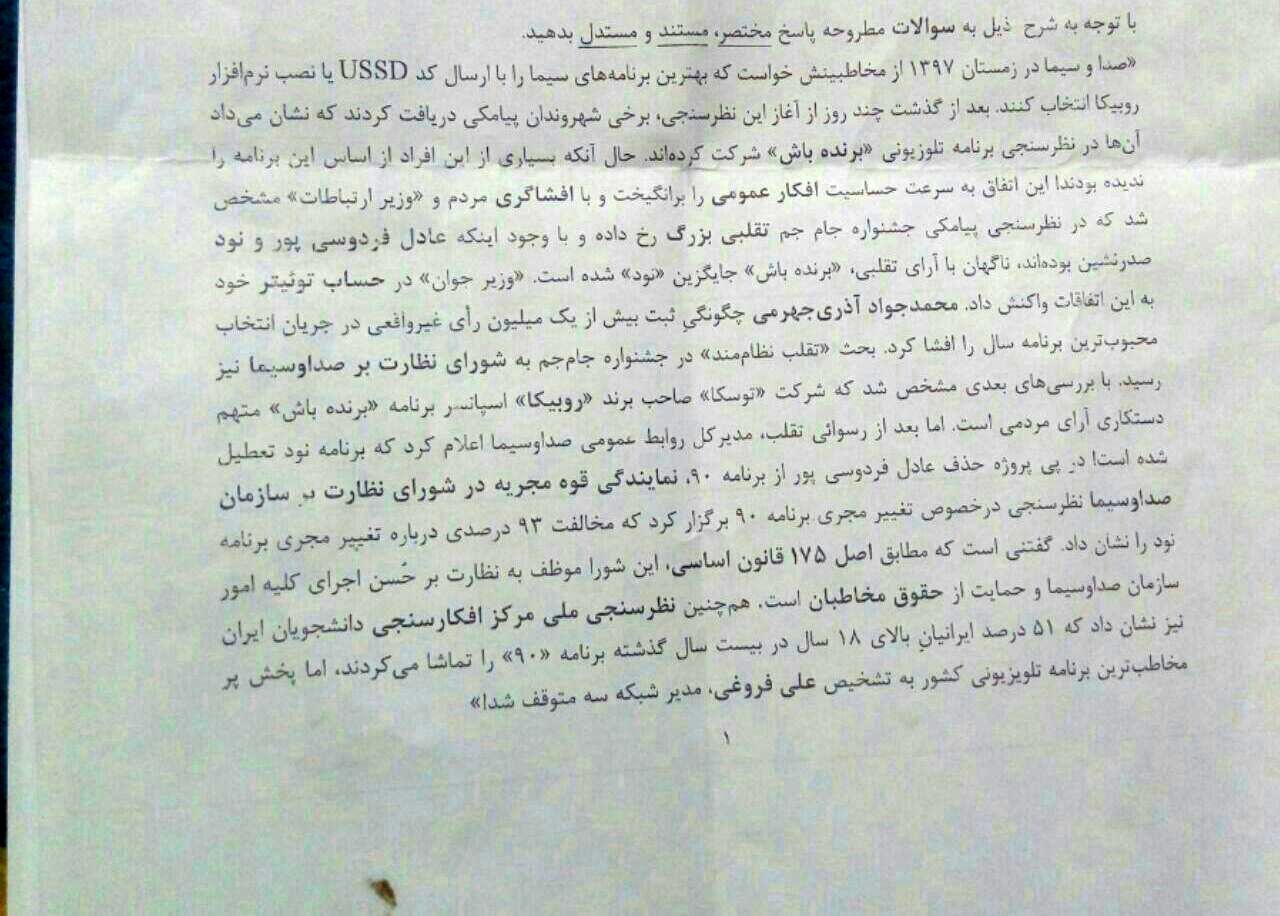 با توجه به شرح ذیل به سوالات مطروحه پاسخ مختصر، مستند و مستدل بدهید.
«صدا و سیما در زمستان ۱۳۹۷ از مخاطبینش خواست که بهترین برنامه‌های سیما را با ارسال کد USSD یا نصب نرم‌افزار
روبیکا انتخاب کنند. بعد از گذشت چند روز از آغاز این نظرسنجی، برخی شهروندان پیامکی دریافت کردند که نشان می‌داد
آن‌ها در نظرسنجی برنامه تلوزیونی «برنده باش» شرکت کرده‌اند. حال آنکه بسیاری از این افراد از اساس این برنامه را
ندیده بودند! این اتفاق به سرعت حساسیت افکار عمومی را برانگیخت و با افشاگری مردم و «وزیر ارتباطات» مشخص
شد که در نظرسنجی پیامکی جشنواره جام جم تقلبی بزرگ رخ داده و با وجود اینکه عادل فردوسی پور و نود
صدرنشین بوده‌اند، ناگهان با آرای تقلبی، «برنده باش» جایگزین «نود» شده است. «وزیر جوان» در حساب توئیتر خود
به این اتفاقات واکنش داد. محمدجواد آذری‌جهرمی چگونگیِ ثبت بیش از یک میلیون رأی غیرواقعی در جریان انتخاب
محبوب‌ترین برنامه سال را افشا کرد. بحث «تقلب نظام‌مند» در جشنواره جام‌جم به شورای نظارت بر صداوسیما نیز
رسید. با بررسی‌های بعدی مشخص شد که شرکت «توسکا» صاحب برند «روبیکا» اسپانسر برنامه «برنده باش» متهم
دستکاری آرای مردمی است. اما بعد از رسوائی تقلب، مدیرکل روابط عمومی صداوسیما اعلام کرد که برنامه نود تعطیل
شده است! در پی پروژه حذف عادل فردوسی پور از برنامه ۹۰، نمایندگی قوه مجریه در شورای نظارت بر سازمان
صداوسیما نظرسنجی درخصوص تغییر مجری برنامه ۹۰ برگزار کرد که مخالفت ۹۳ درصدی درباره تغییر مجری برنامه
نود را نشان داد. گفتنی است که مطابق اصل ۱۷۵ قانون اساسی، این شورا موظف به نظارت بر حُسن اجرای کلیه امور
سازمان صداوسیما و حمایت از حقوق مخاطبان است. هم‌چنین نظرسنجی ملی مرکز افکارسنجی دانشجویان ایران
نیز نشان داد که ۵۱ درصد ایرانیانِ بالای ۱۸ سال در بیست سال گذشته برنامه «۹۰» را تماشا می‌کردند، اما پخش پر
مخاطب‌ترین برنامه تلویزیونی کشور به تشخیص علی فروغی، مدیر شبکه سه متوقف شد!»
۱